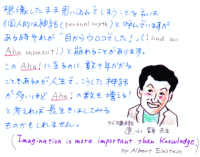 根拠したまま思い込んでしまうことを私は
個人的な神話(personal myth)と呼んでいますが
ある時それが「目からウロコでした！」(I had an
Aha moment!)と崩れることがあります。
このAha!に至るのに数十年かかる
こともあるが人生で、こうした神話
が多いほどAha!の数も増える！
と考えれば長生きはしてみる
ものかもしれません。
山 先生
"Imagination is more important than Knowledge."
by Albert Einstein